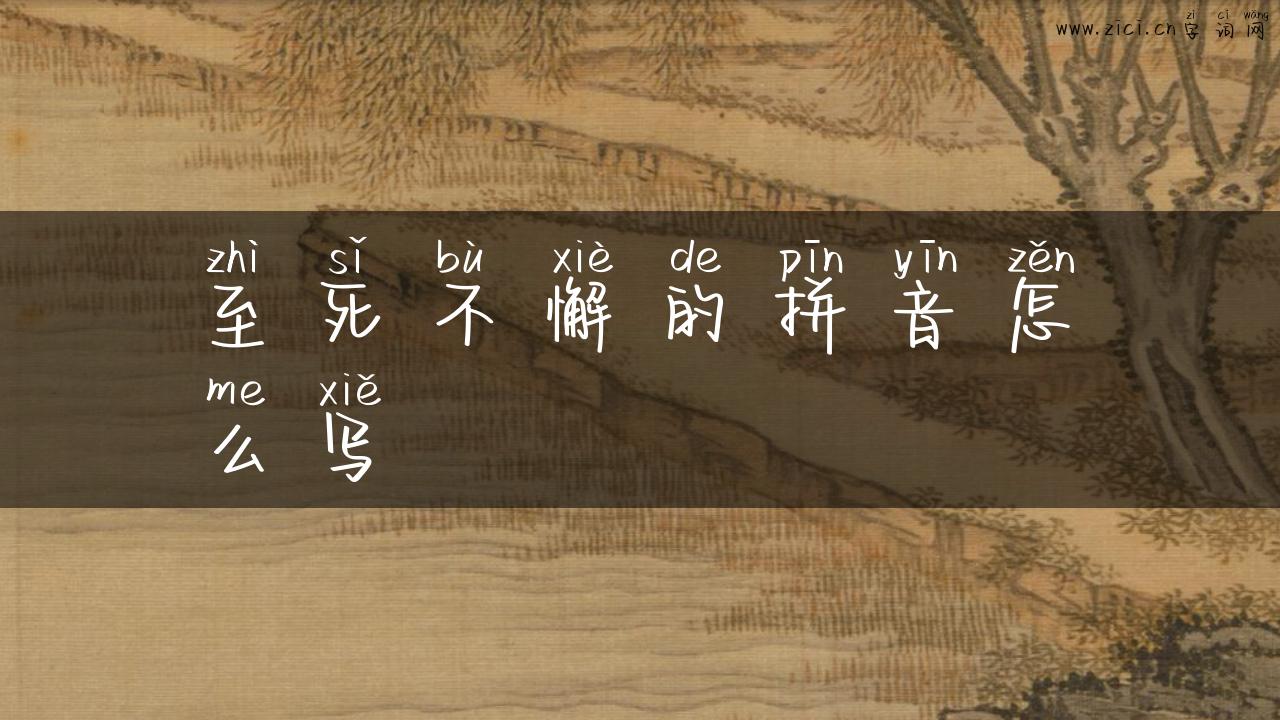 zì cí wǎng
www.zici.cn字词网
zhì sǐ bù xiè de pīn yīn zěn
至死不懈的拼音怎
me xiě
么写